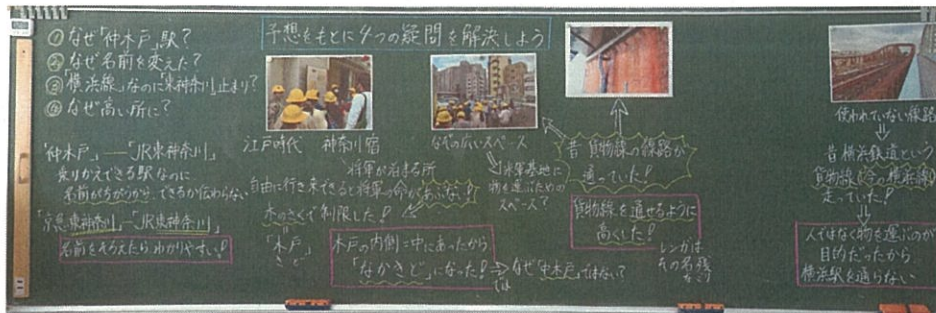 予想をもとに4つの疑問を解決しよう
①なぜ「仲木戸」駅?
②なぜ名前を変えた?
③「横浜線」なのに「東神奈川」止まり?
④なぜ高い所に?
「仲木戸」―「JR東神奈川」
乗りかえできる駅なのに
名前がちがうから、できるか伝わらない
「京急東神奈川」―「JR東神奈川」
名前をそろえたらわかりやすい!
江戸時代 神奈川宿
将軍が泊まる所
自由に行き来できると将軍の命があぶない!
木のさくで制限した!
「木戸」
きど
木戸の内側=中にあったから
「なかきど」になった!
なぜ「中木戸」ではない?
なぞの広いスペース
米軍基地に
物を運ぶための
スペース?
昔貨物線の線路が
通っていた!
貨物線を通せるように
高くした!
レンガは
その名残
使われていない線路
昔横浜鉄道という
貨物線(今の横浜線)が
走っていた!
人ではなく物を運ぶのが
目的だったから
横浜駅を通らない